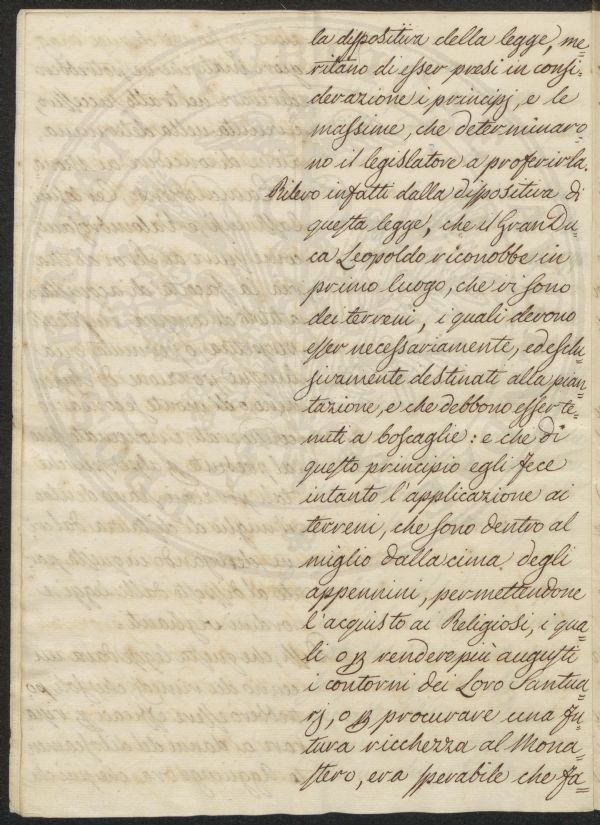 la dispositiva della legge, me=
ritano di esser presi in consi=
derazione i principj, e le
massime, che determinaro=
no il legislatore a proferirla.
Rilevo infatti dalla dispositiva di
questa legge, che il Gran Du=
ca Leopoldo riconobbe in
primo luogo, che vi sono
dei terreni, i quali devono
esser necessariamente, ed esclu=
sivamente destinati alla pian=
tazione, e che debbono esser te=
nuti a boscaglie: e che di
questo principio egli fece
intanto l'applicazione ai
terreni, che sono dentro al
miglio dalla cima degli
appennini, permettendone
l'acquisto ai Religiosi, i qua=
li o p rendere più augusti
i contorni dei Loro Santua=
rj, o p procurare una fu=
tura ricchezza al Mona=
stero, era sperabile che fa=